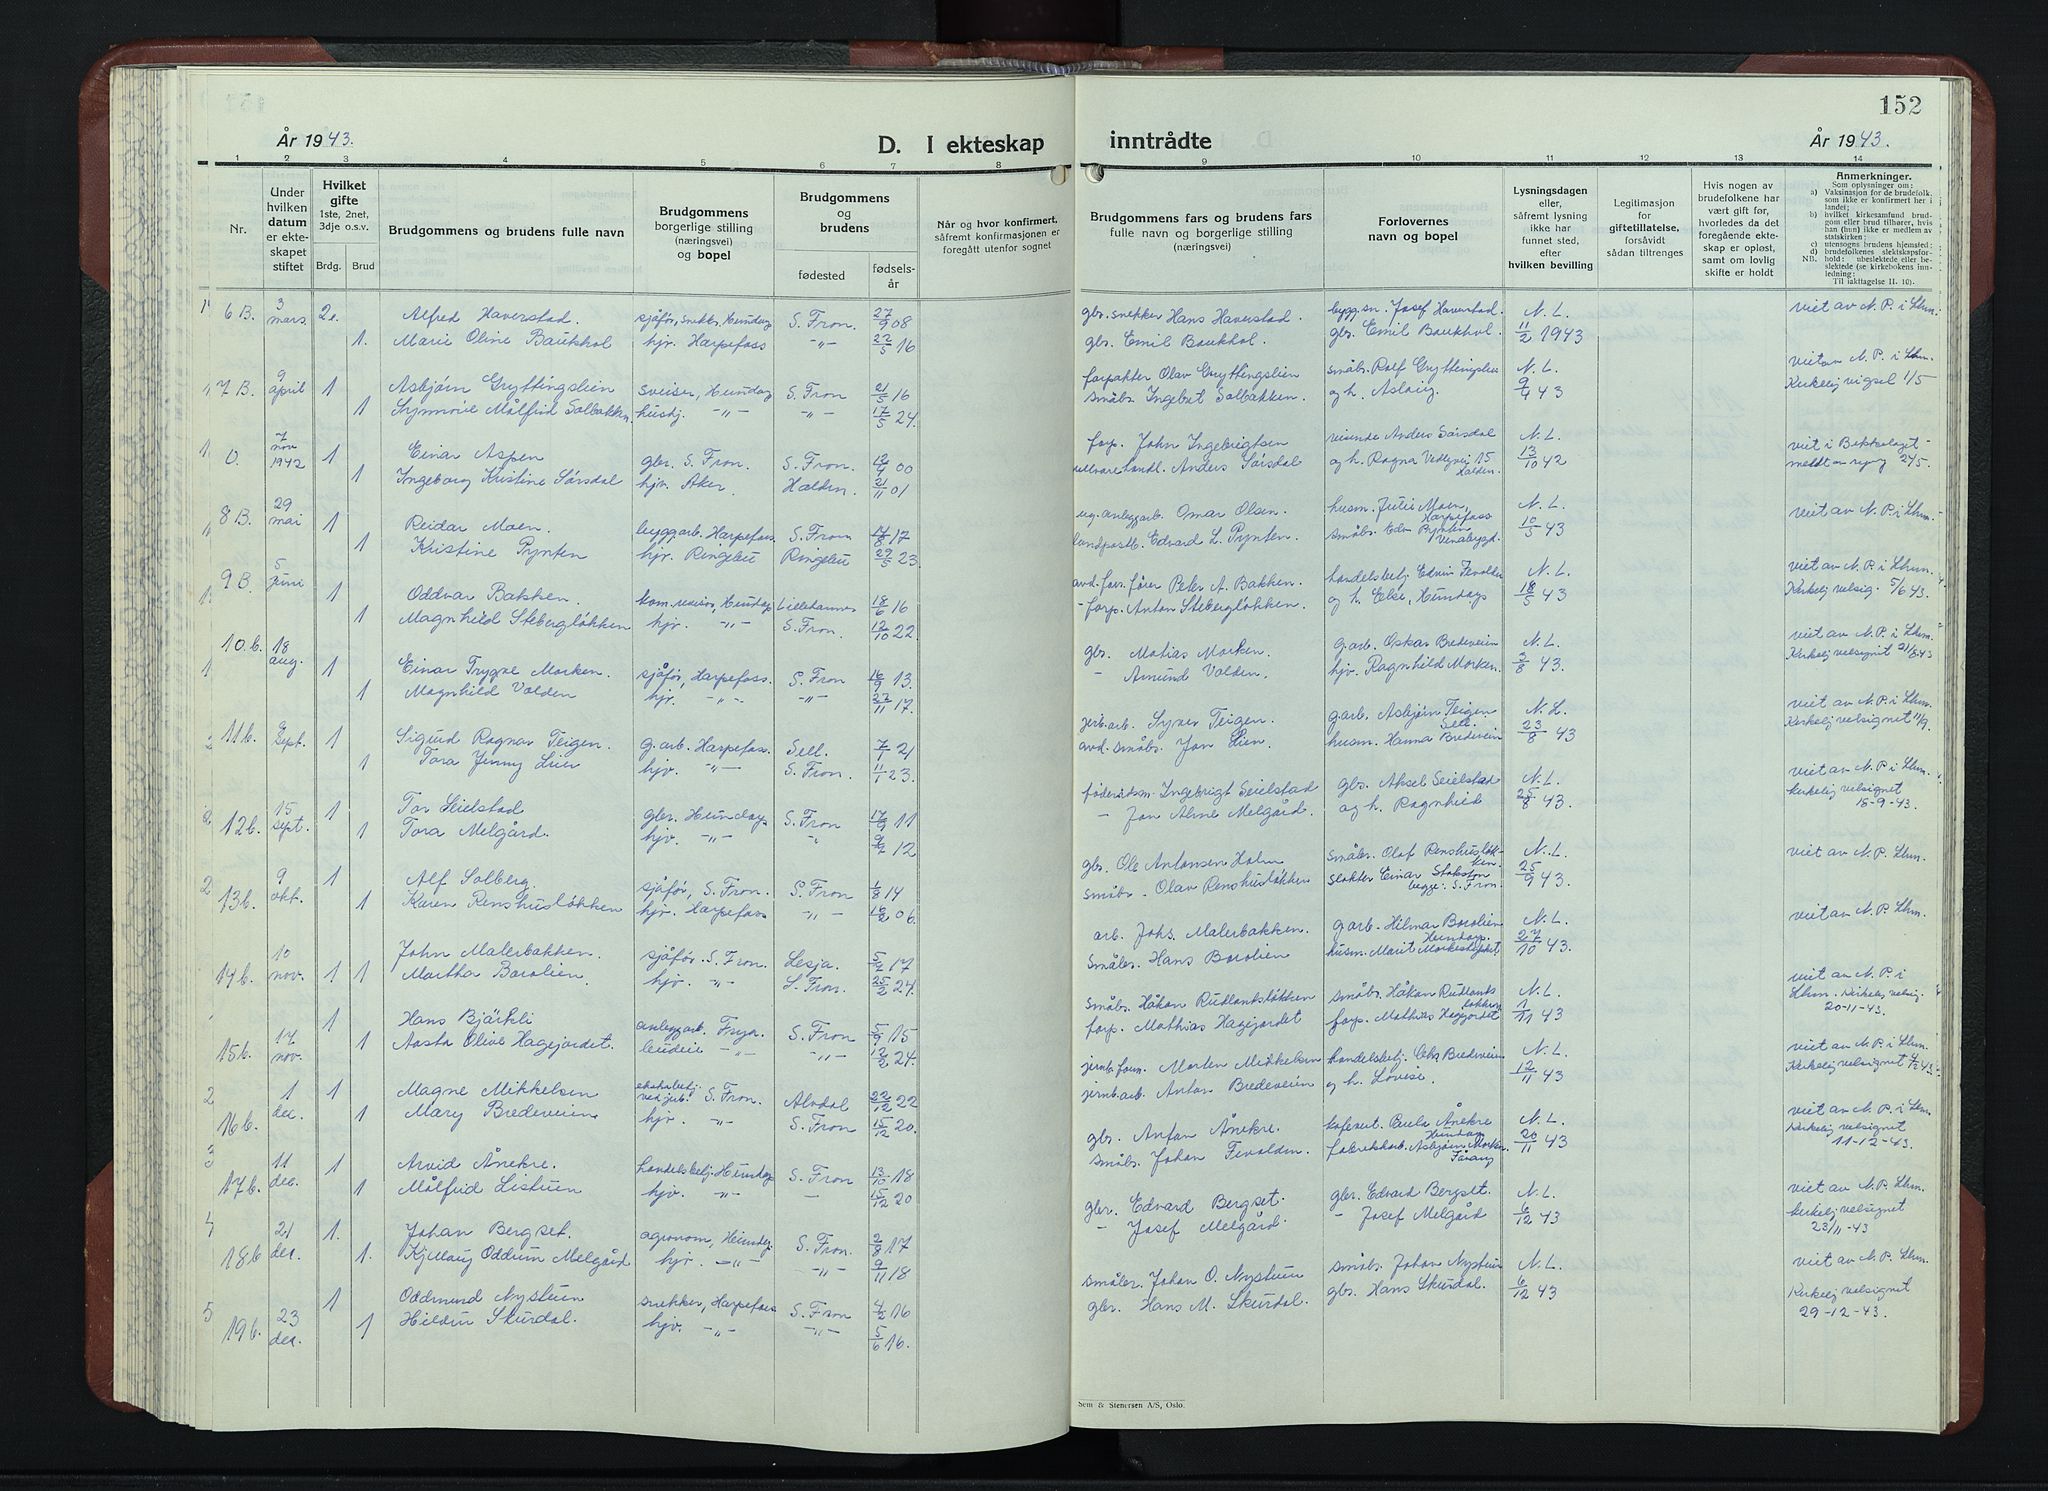 152
År 1943.
D. I ekteskap
inntrådte
År 1943.
1 2 3 4 5 6 7 8 9 10 11 12 13 14
Nr.
Under hvilken datum er ekte- skapet stiftet
Hvilket gifte 1ste, 2net, 3dje o.s.v.
Brdg. Brud
Brudgommens og brudens fulle navn
Brudgommens borgerlige stilling (næringsvei) og bopel
Brudgommens og brudens
fødested
fødsels- år
Når og hvor konfirmert, såfremt konfirmasjonen er foregått utenfor sognet
Brudgommens fars og brudens fars fulle navn og borgerlige stilling (næringsvei)
Forlovernes navn og bopel
Lysningsdagen eller, såfremt lysning ikke har funnet sted, efter hvilken bevilling
Legitimasjon for giftetillatelse, forsåvidt sådan tiltrenges
Hvis nogen av brudefolkene har vært gift før, hvorledes da det foregående ekte- skap er opløst, samt om lovlig skifte er holdt
Anmerkninger.
Som oplysninger om:
a) Vaksinasjon for de brudefolk, som ikke er konfirmert her i landet;
b) hvilket kirkesamfund brudgom eller brud tilhører, hvis han (hun) ikke er medlem av statskirken;
c) utensogns brudens hjemsted;
d) brudefolkenes slektskapsforhold: ubeslektede eller beslektede (se kirkebokens innledning;
NB. Til iakttagelse II. 10).
6 B. 3 mars. 2. Alfred Haverstad. sjåfør, snekk., Hundorp S. Fron. 27/9 08 gbr. snekker Hans Haverstad. byggm. Josef Haverstad. N. L. viet av N. P. i Lhm.
1. Marie Oline Baukhol hjv. Harpefoss -"- 22/5 16 gbr. Emil Baukhol. gbr. Emil Baukhol. 11/2 1943
7 B. 9 april 1 Asbjørn Gryttingslien sveiser, Hundorp S. Fron 21/5 16 forpakter Olav Gryttingslien småbr. Rolf Gryttingslien N. L. viet av N. P. i Lhm.
1 Synnøve Målfrid Solbakken husbj. -"- -"- 17/5 24. småbr. Ingebret Solbakken. og h. Aslaug. 9/4 43 Kirkelig vigsel 1/5
0. 7 nov 1942 1 Einar Aspen gbr. S. Fron. S. Fron. 00 forp. John Ingebrigtsen Anders Sørsdal N. L. viet i Bekkelaget
1 Ingeborg Kristine Sørsdal hjv. Aker. Halden. 21/11 01 Anders Sørsdal og h. Ragna Vedlyvei 15 Halden. 13/10 42 24/5
8 B. 29 mai 1 Reidar Moen. byggarb. Harpefoss S. Fron 14/8 17 ug. anleggarb. Omar Olsen husm. Julie Moen, Harpefoss N. L. viet av N. P. i Lhm.
1 Kristine Pynten hjv. Ringebu Ringebu 29/5 23. landpostb. Edvard L. Pynten. småbr. Edv Pynten Venabygd. 10/5 43
9 B. 5 juni 1 Oddvar Bakken. kom.revisor, Hundorp Lillehammer 18/6 16 Peter A. Bakken. handelsbetj. Edvin Fevolden N. L. viet av N. P. i Lhm.
1 Magnhild Stebergløkken hjv. -"- S. Fron. 12/10 22. forp. Anton Stebergløkken. og h. Else, Hundorp 18/5 43 Kirkelig velsig. 5/6 43.
10 b. 18 aug. 1 Einar Trygve Morken. sjåfør, Harpefoss. S. Fron 16/9 13. gbr. Matias Morken. g.arb. Oskar Bredeveien N. L. viet av N. P. i Lhm.
1 Magnhild Volden hjv. -"- -"- 22/11 17. - Amund Volden. hjv. Ragnhild Morken. 3/8 43. Kirkelig velsignet 21/8 43
11 b. sept. 1 Sigurd Ragnar Teigen. g.arb. Harpefoss. Sell. 7/1 21 jernb.arb. Syver Teigen. g.arb. Asbjørn Teigen Sell. N. L. viet av N. P. i Lhm.
1 Tora Jenny Lien hjv. -"- S. Fron. 11/1 23. avd. småbr. Jon Lien. husm. Hanna Bredeveien 23/8 43 Kirkelig velsignet 11/9.
12 b. 15 sept. 1 Tor Seielstad gbr. Hundorp S. Fron 17/9 11 føderådsm. Ingebrigt Seielstad gbr. Aksel Seielstad N. L. viet av N. P. i Lhm.
1 Tora Melgård. hjv. -"- " 9/2 12 - Jon Arne Melgård. og h. Ragnhild 25/8 43. Kirkelig velsignet 18-9-43.
13 b. 9 okt. 1 Alf Solberg. sjåfør, S. Fron. S. Fron 1/8 14 gbr. Ole Antonsen Holm småbr. Olaf Renshusløkken. N. L. viet av N. P. Lhm.
1 Karen Renshusløkken hjv. Harpefoss -"- 16/2 06. småbr. Olav Renshusløkken slakter Einar Stokston begge: S. Fron. 25/9 43.
14 b. 10 nov. 1 John Malerbakken. sjåfør. S. Fron. Lesja. 5/2 17 arb. Johs. Malerbakken. g.arb. Hilmar Borolien Hundorp. N. L. viet av N. P. Lhm.
1 Martha Borolien hjv. -"- S. Fron. 25/2 24. Småbr. Hans Borolien husm. Marit 27/10 43.
15 b. 17 nov. 1 Hans Bjørkli anleggarb. Frya. S. Fron 5/9 15 småbr. Håkon Rudlantsløkken småbr. Håkon Rudlantsløkken N. L. viet av N. P. i Lhm. Kirkelig velsig. 20-11-43.
1 Aasta Olive Hagejordet. -"- -"- 12/2 24. forp. Mathias Hagejordet forp. Mathias Hagejordet 1/11 43
16 b. 1 des. 1 Magne Mikkelsen ekstrabetj. ved jerb. S. Fron. Alvdal 22/12 22 jernb.form. Morten Mikkelsen handelsbetj. Bredeveien N. L. viet av N. P. i Lhm.
1 Mary Bredeveien hjv. -"- S. Fron 15/12 20. jernb.arb. Anton Bredeveien og h. Lovise. 12/11 43 Kirkelig velsignet 4/12 43.
17 b. 11 des. 1 Arvid Ånekre. handelsbetj. Hundorp S. Fron 13/10 18 gbr. Anton Ånekre. Paula Ånekre Hundorp N. L. viet av N. P. i Lhm. Kirkelig velsignet 11-12-43.
1 Målfrid Listuen hjv. -"- - 15/12 20 småbr. Johan Fevolden. fabrikkarb. Asbjørn Morken Fåvang 20/11 43
18 b 21 des. 1. Johan Bergset. agronom, Hundorp. S. Fron. 2/8 17 gbr. Edvard Bergset. gbr. Edvard Bergset. N. L. viet av N. P. Lhm. Kirkelig velsignet 23/11-43
1. Kjellaug Oddrun Melgård hjv. -"- -"- 9/11 18 - Josef Melgård. - Josef Melgård 6/12 43
19 b. 23 des. 1 Oddmund Nystuen snekker, Harpefoss S. Fron 4/2 16 småbr. Johan O. Nystuen småbr. Johan Nystuen N. L. viet av N. P. Lhm.
1 Hildur Skurdal. hjv. -"- -"- 5/6 16. gbr. Hans M. Skurdal. gbr. Hans Skurdal. 6/12 43 Kirkelig velsignet 29-12-43.
Sem & Stenersen A/S, Oslo.